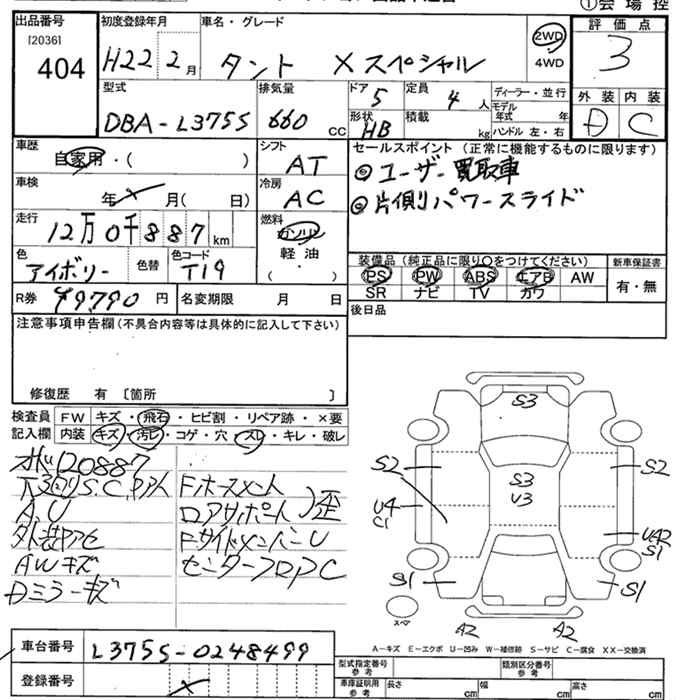 ①会場控
出品番号
[20361
404
初度登録年月
H22 2月
車名・グレード
タント Xスペシャル
2WD
4WD
評価点
3
外装 内装
D C
型式
DBA-L375S
排気量
660 CC
ドア 5
形状 HB
定員 4 人
積載 kg
ディーラー・並行
モデル年式 年
ハンドル 左・右
車歴
自家用・( )
シフト
AT
車検
年 月( 日)
冷房
AC
セールスポイント (正常に機能するものに限ります)
◎ユーザー買取車
◎片側パワースライド
走行
12万0千887km
燃料
ガソリン
軽油
( )
色
アイボリー
色替
色コード
T19
装備品(純正品に限り○をつけてください)
PS PW ABS エアB AW
SR ナビ TV カワ
新車保証書
有・無
R券 ¥9790円
名変期限 月 日
後日品
注意事項申告欄(不具合内容等は具体的に記入して下さい)
修復歴 有 〔箇所 〕
検査員
記入欄
FW キズ・飛石・ヒビ割・リペア跡・×要
内装 キズ・汚レ・コゲ・穴・スレ・キレ・破レ
120887
下回りS.C.
A,U
外装
AWキズ
Dミラーキズ
ロアサポート
歪
FサイドメンバーU
センターフロアC
S3
S2
S2
S3
U3
U4
C1
U42
S1
S1
S1
スペア
A2
A2
A-キズ E-エクボ U-凹み W-補修跡 S-サビ C-腐食 XX-交換済
車台番号
L375S-0248499
登録番号
型式指定番号
参考
類別区分番号
参考
車庫証明用
参考
長さ cm
幅 cm
高さ cm